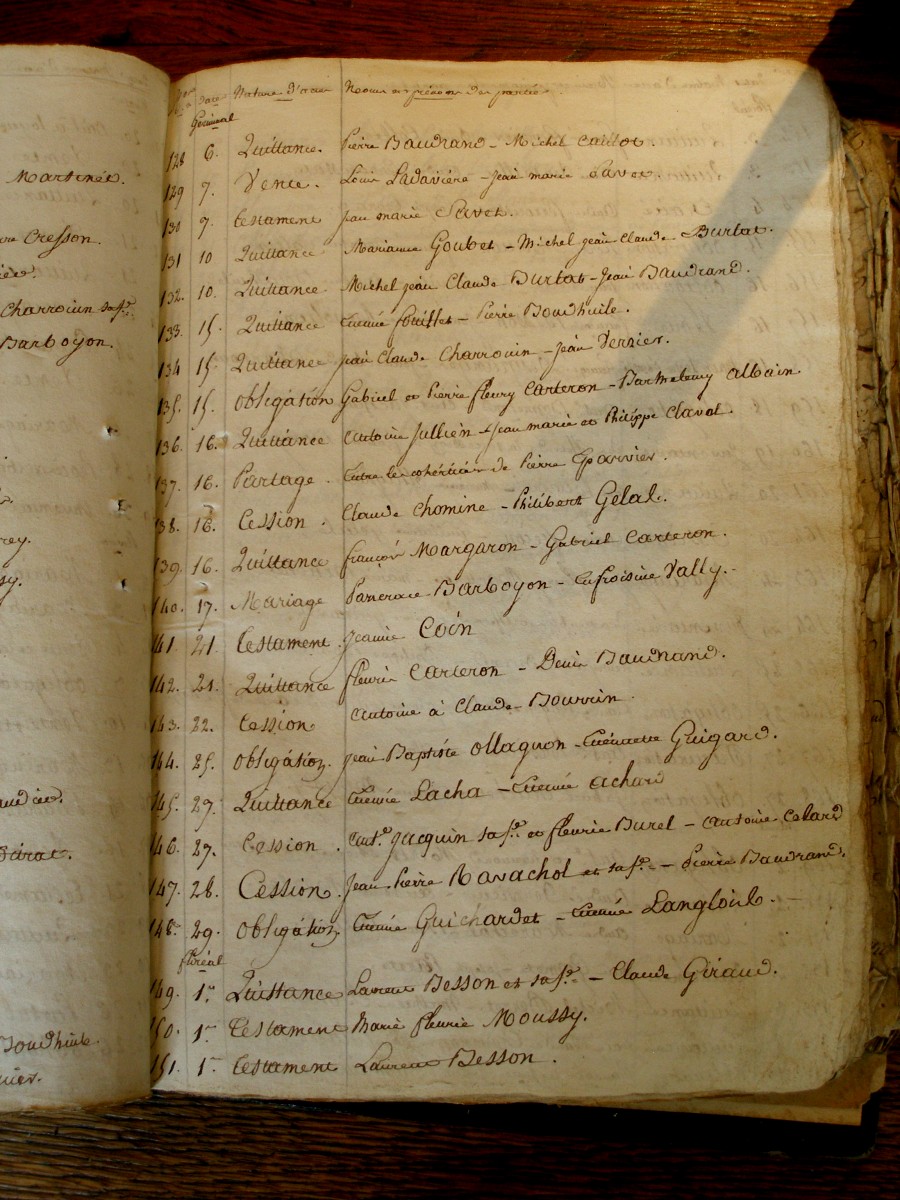 Martinet.
Cresson.
Charrouin sa f.e
Barboyon.
rey.
sy.
Boudhuile.
Nature d'actes Noms et prénoms des parties.
Germinal
128 6. Quittance. Pierre Baudrand - Michel Caillot.
129 7. Vente. Louis Ladavière - Jean marie Savet.
130 7. testament Jean marie Savet.
131 10 Quittance Marianne Goubet - Michel jean Claude Burtat.
132. 10. Quittance Michel jean Claude Burtat - Jean Baudrand.
133. 15. Quittance Etienne fouillet - Pierre Boudhuile.
134 15. Quittance Jean Claude Charrouin - Jean Verrier.
135. 15. obligation Gabriel et Pierre fleury Carteron - Barthelemy albain.
136. 16. Quittance Antoine Jullien - Jean marie et Philippe Clavel.
137. 16. Partage. Entre les cohéritiers de Pierre
138. 16. Cession. Claude Chomine - Philibert Gelal.
139. 16. Quittance françois Margaron - Gabriel Carteron.
140. 17. Mariage Pancrace Barboyon - Eufroisine Vally.
141. 21. testament. Jeanne Coin
142. 21. Quittance fleurie Carteron - Denis Baudrand.
143. 22. Cession Antoine à Claude Bourrin
144. 25. obligation. Jean Baptiste ollagnon - Guigard.
145. 27. Quittance Etienne Lacha - Etienne achard
146. 27. Cession. Ant.e Jacquin sa f.e et fleurie Burel - Antoine Celard
147. 28. Cession. Jean Pierre Ravachol et sa f.e - Pierre Baudrand.
148. 29. obligation Etienne Guichardet - Etienne Langlois.
floréal
149. 1.er Quittance Laurent Besson et sa f.e - Claude Giraud.
150. 1.er testament Marie fleurie Moussy.
151. 1.er testament Laurent Besson.